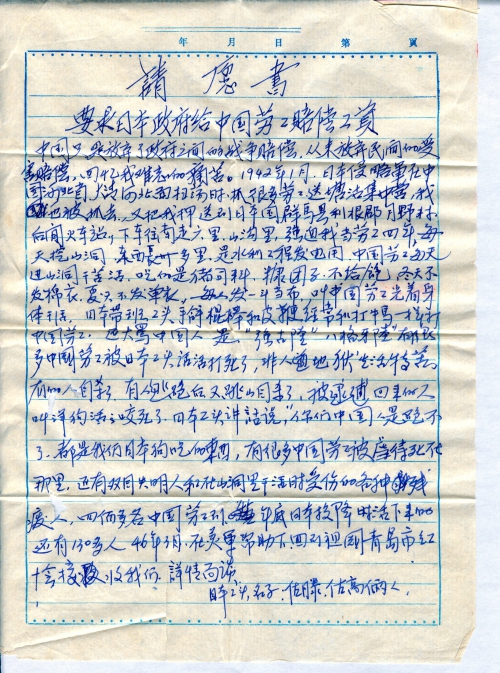 年 月 日 第 頁
請愿書
要求日本政府给中国劳工賠偿工資
中国只是放弃了政府之间的战争賠偿，从未放弃民间的受
害賠偿，回忆我难忘的痛苦。1942年1月，日本侵略军在中
国河北省大沽河北面扫荡时，抓很多劳工送塘沽集中营，我
也被抓去，又把我押送到日本国群馬县利根郡月野村
后闲火车站，下车往南走六里，山沟里，强迫我当劳工四年，每
天挖山洞，东西長卅多里，是水利工程发电用，中国劳工每天
进山洞干苦活，吃的是猪饲料，糠团子，不给饱，冬天不
发棉衣，夏天不发单衣，每人发一斗当布，叫中国劳工光着身
体干活，日本劳工头手拿棍棒和皮鞭经常和打牛馬一样打
中国劳工，也大骂中国人是
多中国劳工被日本工头活活打死了，非人道地狱生活待着，
有的人自杀了，有的逃跑后又跳山自杀了，被逮捕回来的人
叫洋狗活活咬死了，日本工头讲話說，"你们中国人是跑不
了，都是我们日本狗吃的东西，有很多中国劳工被虐待死在
那里，还有双目失明人和在山洞里干活时受伤的各种残
废人，四佰多名中国劳工到 年底日本投降时活下来的
还有130多人，46年1月，在美軍帮助下，回到祖国青島市红
十字 收我们，詳情而谈